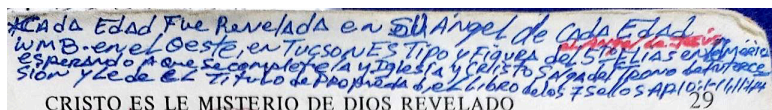 *CAdA EdAd Fue ReveladA en SU Angel de CAdA EdAd
WMB. en el Oeste, en TUCSON ES Tipo y Figura del 5to ELIAS en AMéricA
esperando A que se complete lA y Iglesia y Cristo SAlgA del Trono de InTerce
Sión y le de el TíTulo de PropiedAd, el Libro de los 7 Sellos AP.10:1-11,
CRISTO ES LE MISTERIO DE DIOS REVELADO 29